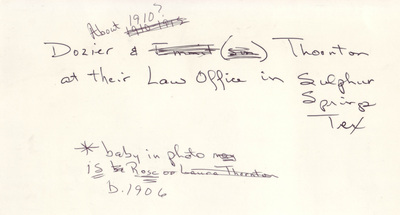 About 1910?
1910 1915
Dozier & Ernest (son) Thornton
at their Law Office in Sulphur
Springs
Tex
* baby in photo
is Rose or Laura Thornton
D. 1906